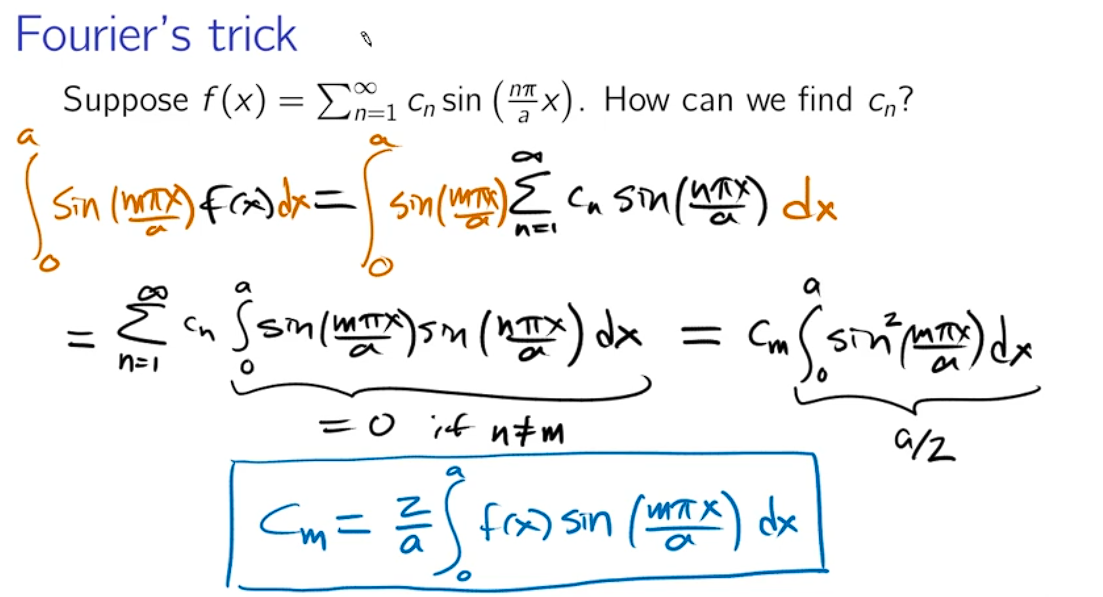 Fourier's trick
Suppose f(x) = ∑_{n=1}^{∞} c_n sin (nπ/a x). How can we find c_n?
∫_0^a sin (mπx/a) f(x) dx = ∫_0^a sin(mπx/a) ∑_{n=1}^{∞} c_n sin(nπx/a) dx
= ∑_{n=1}^{∞} c_n ∫_0^a sin(mπx/a) sin(nπx/a) dx = c_m ∫_0^a sin²(mπx/a) dx
= 0 if n≠m
a/2
c_m = 2/a ∫_0^a f(x) sin (mπx/a) dx